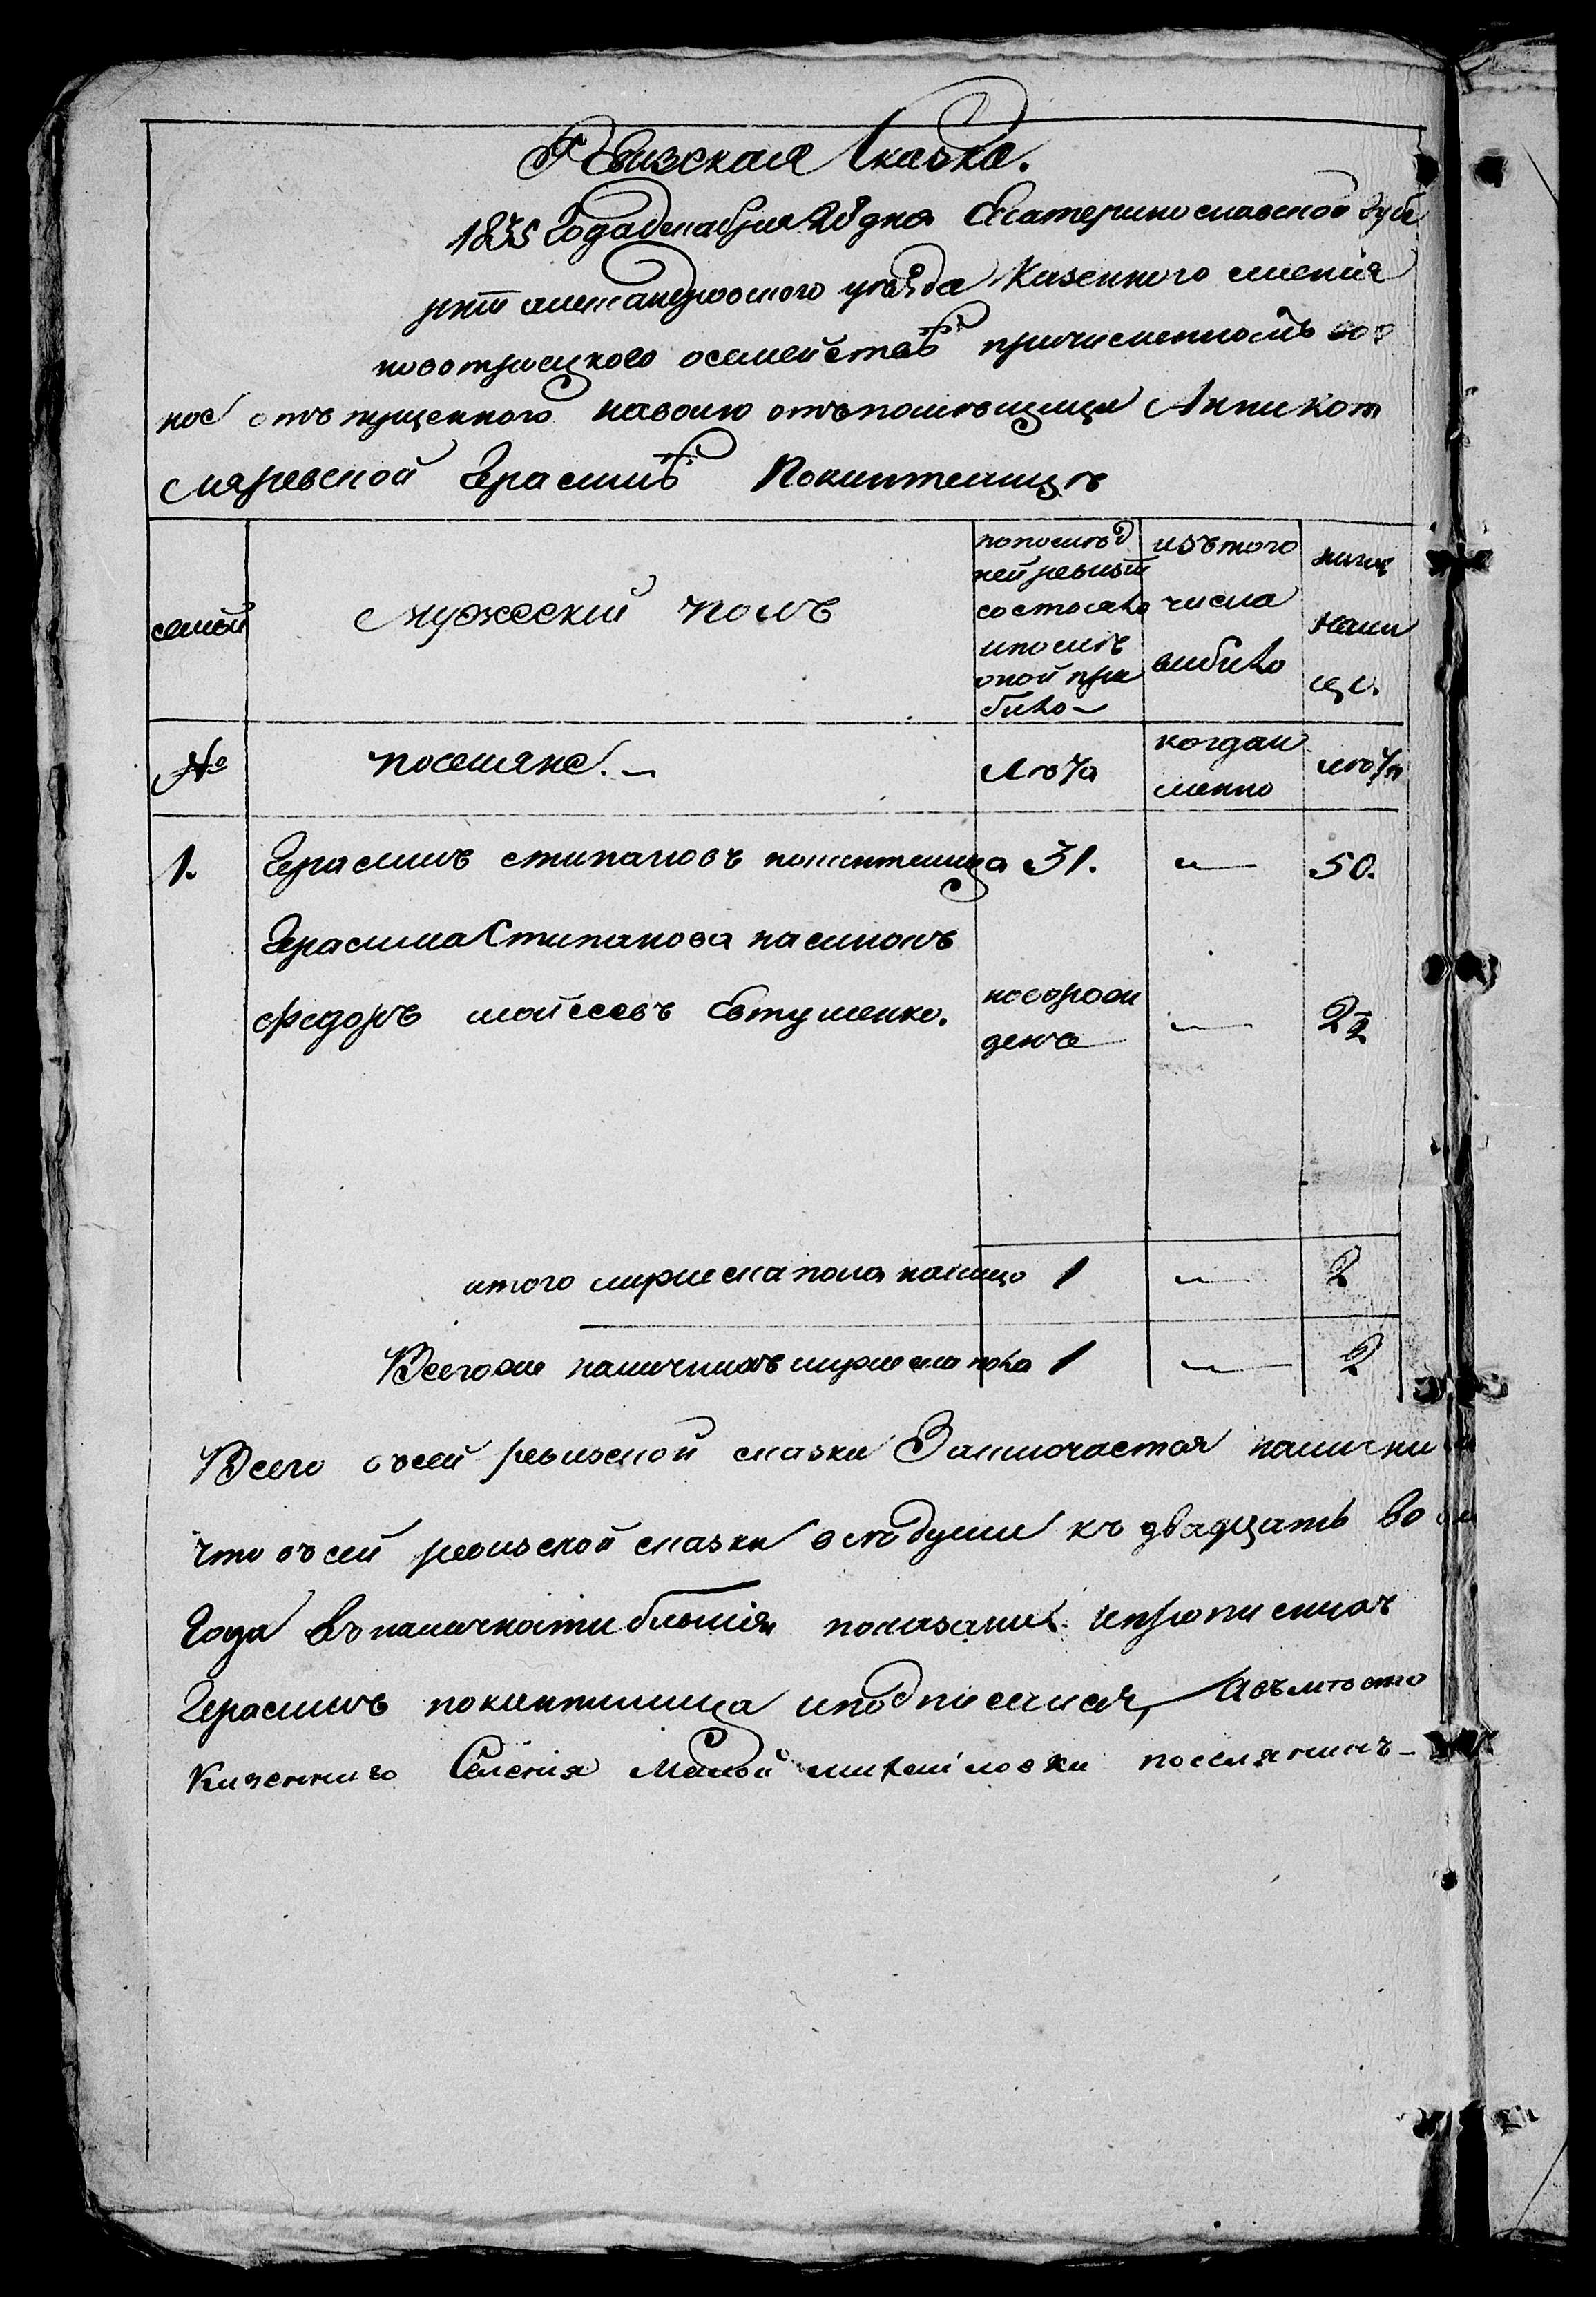 Ревизская Сказка.
1835 Года декабря 28 дня Екатеринославской Губе
рніи александровского уѣзда Казенного селенія
новотроицкого осемействѣ причисленномъ воо
ное отъ пущенного наволю отъ помѣщицы Анни Кот
ляревской Герасимѣ Покинтелицѣ
семьи
Мужеский полъ
попослѣд
ней ревизіи
состояло
ипослѣ
оной при
било
изътого
числа
выбило
нынѣ
нали
цо.
№
поселяне.
Лѣта
когдаи
менно
лѣта
1. Герасимъ стипановъ покинтелица 31. — 50.
Герасима Стипанова пасинокъ
федоръ мойсеевъ Евтушенко. новорож — 2½
денъ
итого мужеска пола налицо 1 — 2
Всегоже наличнихъ мужеска пола 1 — 2
Всего въсей ревизской сказки Заключается наличних
что въсей ревизской сказки всѣ души къ двадцать во
Года въ наличности бывшія показани. непрописних
Герасимъ покинтилица иподписался, Авъмѣсто
Казенниго Селенія Малой михайловки поселянинъ